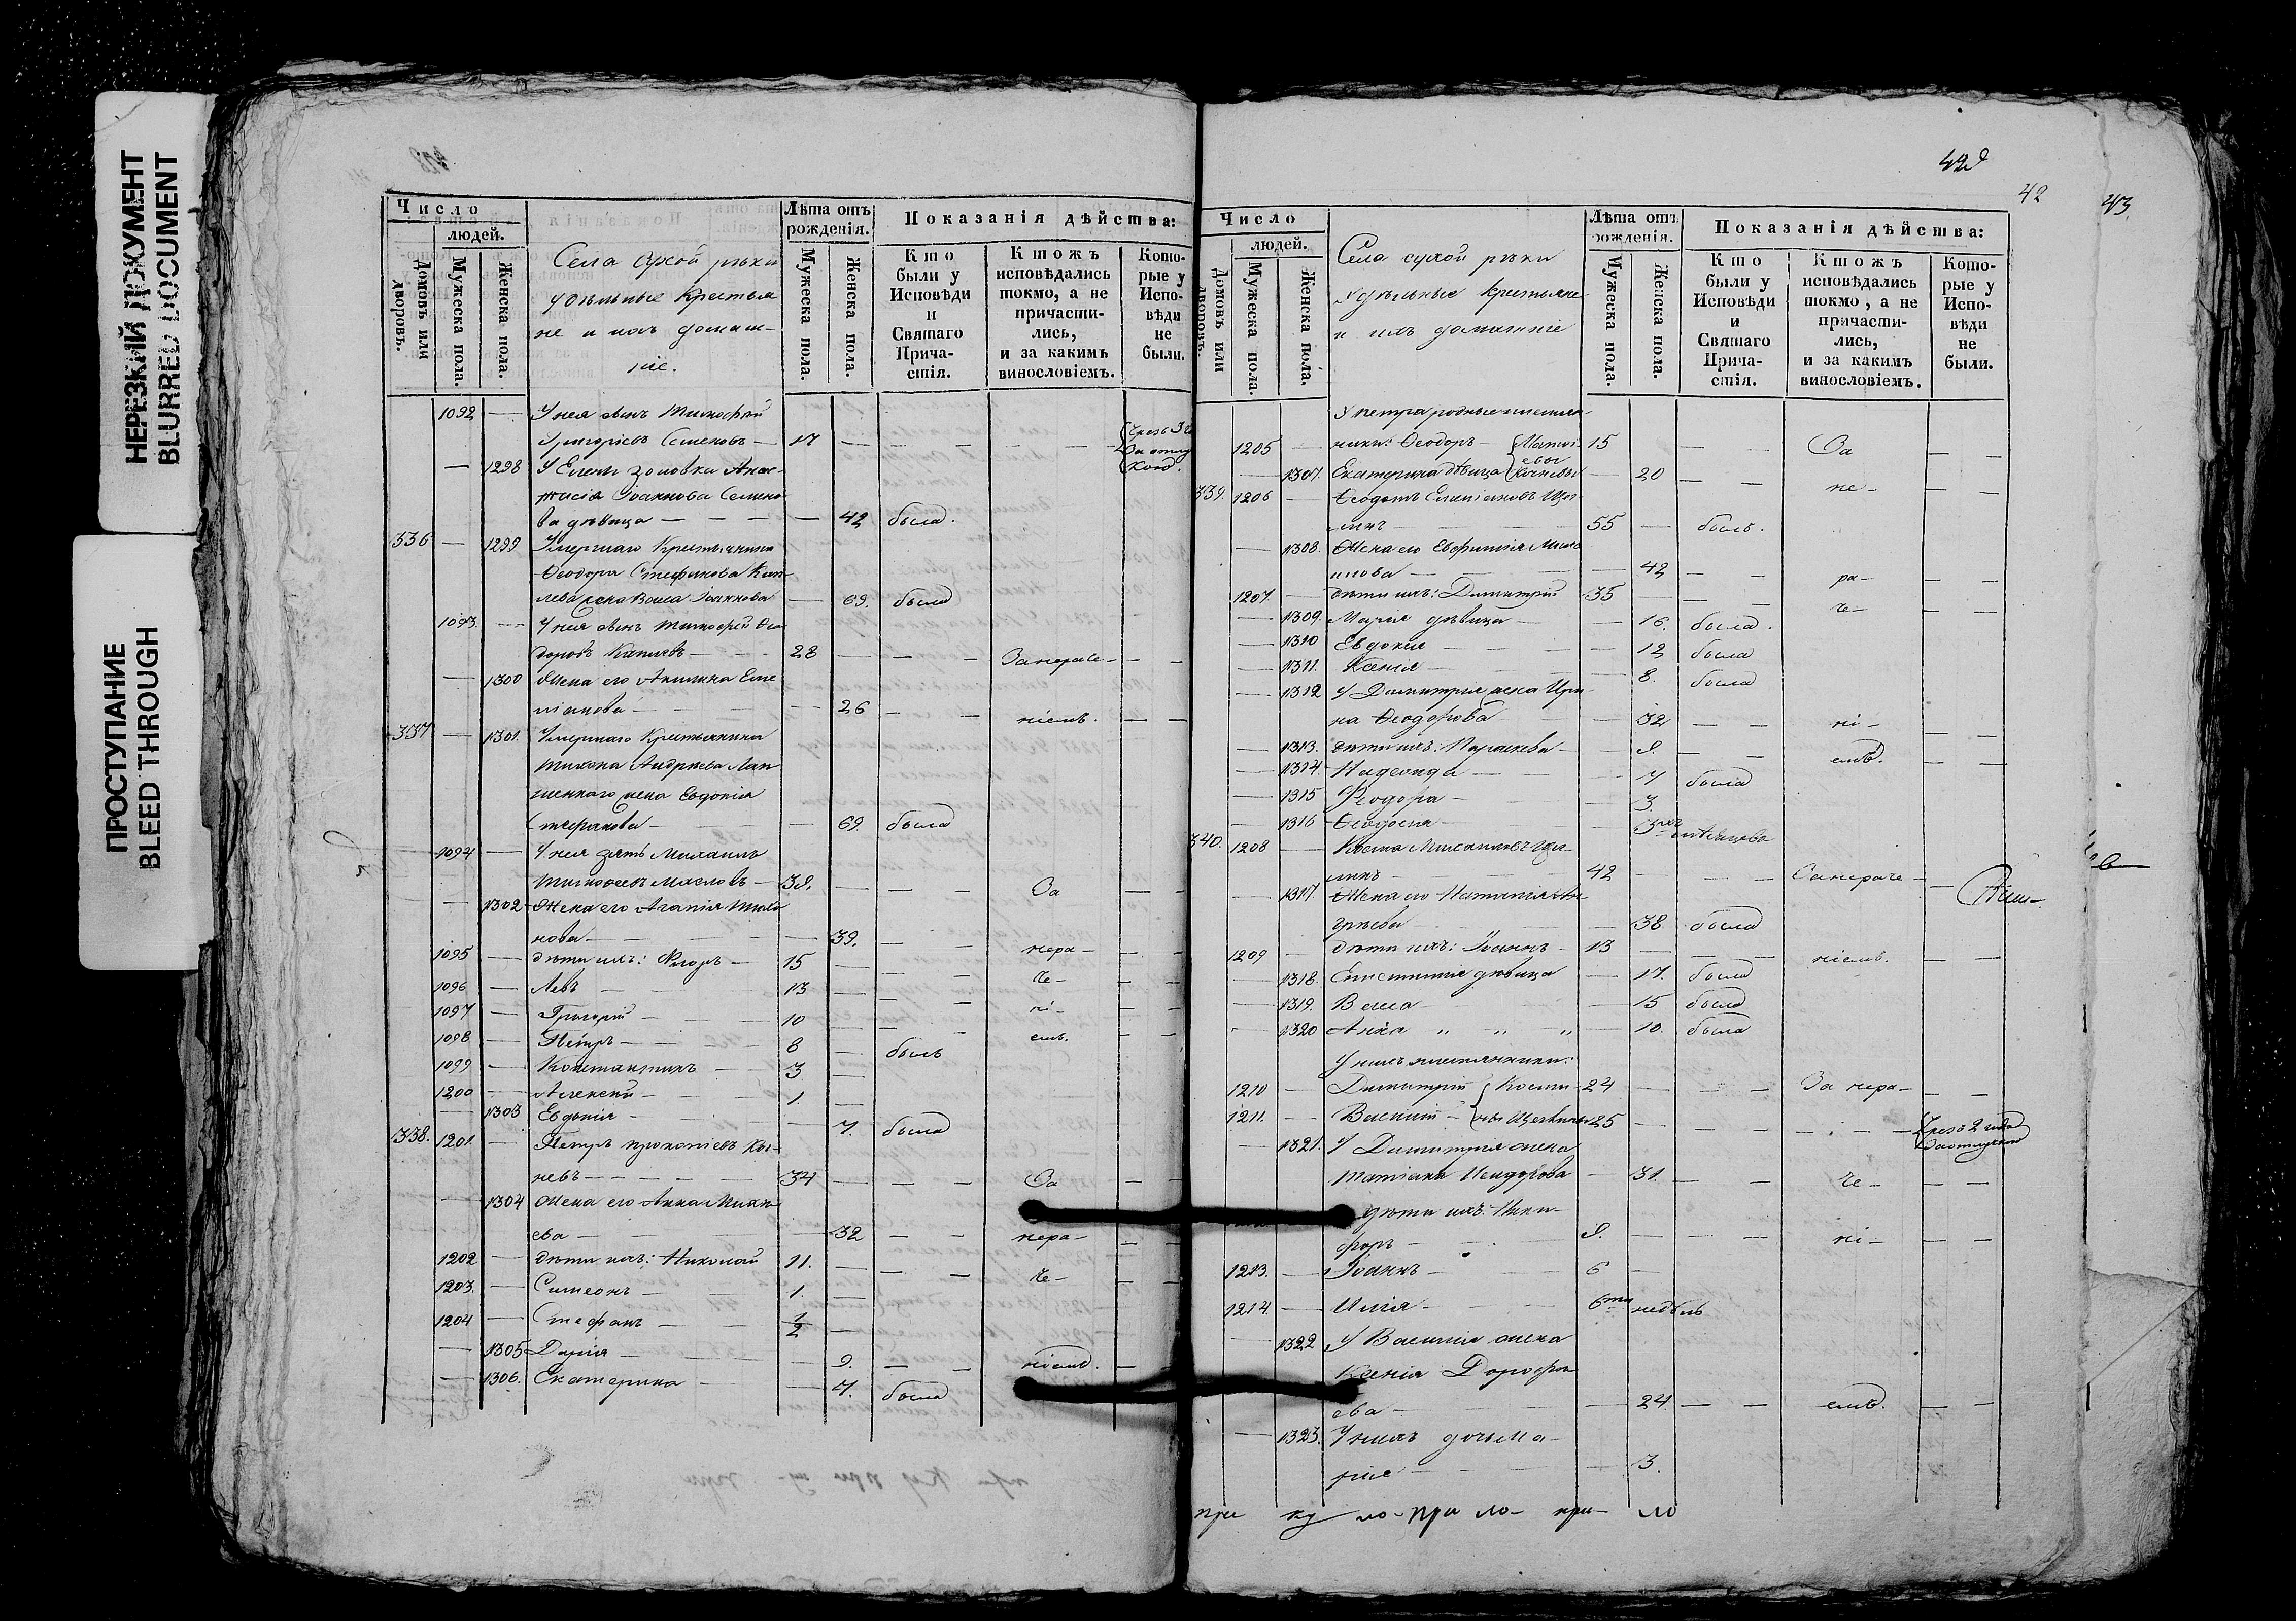 НЕРЕЗКИЙ ДОКУМЕНТ
BLURRED DOCUMENT
ПРОСТУПАНИЕ
BLEED THROUGH
Число
людей.
Домовъ или дворовъ.
Мужеска пола.
Женска пола.
Села сухой рѣки
удѣльные крестья
не и ихъ домаш-
ніе.
Лѣта отъ рожденія.
Мужеска пола.
Женска пола.
Показанія дѣйства:
Кто были у Исповѣди и Святаго Прича-стія.
Ктожъ исповѣдались токмо, а не причасти-лись, и за какимъ винословіемъ.
Кото-рые у Испо-вѣди не были.
1092 — У нея сынъ Тимофей
Григорьевъ Семеновъ — 17 — — — —
— 1298 У Елены золовка Анас-
тасія Іоаннова Семено
ва дѣвица — — — — 42 была.
336 — 1299 Умершаго Крестьянина
Ѳеодора Стефанова
жена Васса Іоаннова — 69. была
1093. — У нея сынъ Тимофей Ѳео
доровъ 28 — — — За нераче- —
— 1300 Жена его Акилина Еме
ліанова — — 26 — — ніемъ. — —
337 — 1301. Умершаго Крестьянина
Тихона Андреева
жена Евдокія
Стефанова — — 69. была
1094 — У нея зять Михаилъ
Тимоѳеевъ Масловъ — 38. — — — За — —
— 1302 Жена его Агапія Тихо
нова — — 39. — — нера- — —
1095 — дѣти ихъ: Ѳлоръ — 15 — — — че- — —
1096 — Левъ — 13 — — — ні- — —
1097 — Григорій — 10 — — — емъ. — —
1098 — Петръ — 8 — былъ
1099 — Константинъ — 3 —
1200 — Алексей — 1 —
— 1303 Евдокія — — 7. была
338. 1201. — Петръ Прокопіевъ Кы-
невъ — — 34 — — — За — —
— 1304 Жена его Анна Михе
ева — — 32 — — нера- — —
1202 — дѣти ихъ: Николай 11. — — — че- — —
1203. — Симеонъ — 1. —
1204 — Стефанъ — ½ —
— 1305 Дарія — — 9. — — ніемъ. — —
— 1306. Екатерина — — 7. была
42
43
Число
людей.
Домовъ или дворовъ.
Мужеска пола.
Женска пола.
Села сухой рѣки
удѣльные крестьяне
и ихъ домашніе
Лѣта отъ рожденія.
Мужеска пола.
Женска пола.
Показанія дѣйства:
Кто были у Исповѣди и Святаго Прича-стія.
Ктожъ исповѣдались токмо, а не причасти-лись, и за какимъ винословіемъ.
Кото-рые у Испо-вѣди не были.
У Петра родные племян-
1205 — ники: Ѳеодоръ — 15 — — За — —
— 1307. Екатерина дѣвица — 20 — — не- — —
339. 1206 — Ѳеодотъ Емиліановъ Щег-
линъ — 55 — былъ.
— 1308. Жена его Евфимія Миха
илова — — 42 — — ра- — —
1207. — дѣти ихъ: Димитрій 35 — — — че- — —
— 1309. Марія дѣвица — — 16. была.
— 1310 Евдокія — — 12 была
— 1311. Ксенія — — 8. была
— 1312 У Димитрія жена Ири
на Ѳеодорова — 32 — — ні- — —
— 1313. дѣти ихъ: Параскева — — 9. — — емъ. — —
— 1314. Надежда — — 7 была
— 1315 Ѳеодора — — 3.
— 1316 Ѳеодосія — — 3хъ мѣсяцовъ
340. 1208 — Косма Михаиловъ Щег-
линъ — 42 — — — За нераче- —
— 1317. Жена его Наталія Ан
дреева — — 38 была
1209 — дѣти ихъ: Іоаннъ — 13 — — — ніемъ. — —
— 1318. Епистимія дѣвица — 17. была
— 1319. Васса — — 15 была
— 1320 Анна „ „ „ — 10. была
У нихъ племянники:
1210 — Димитрій 24 — — — За нера- — —
1211. — Василій — 25 — — — — Чрезъ 2 года
— 1321. У Димитрія жена
Татіана Исидорова — 31. — — че- — —
дѣти ихъ: Ники-
форъ — 9. — — — ні- — —
1213. — Іоаннъ — 6 —
1214. — Илія — 6ти недѣль
— 1322 У Василія жена
Ксенія Дороѳе
ева — — 24. — — емъ. — —
— 1323. У нихъ дочь Ма-
рія — — 3.
при ку ло- при ло- при- ло